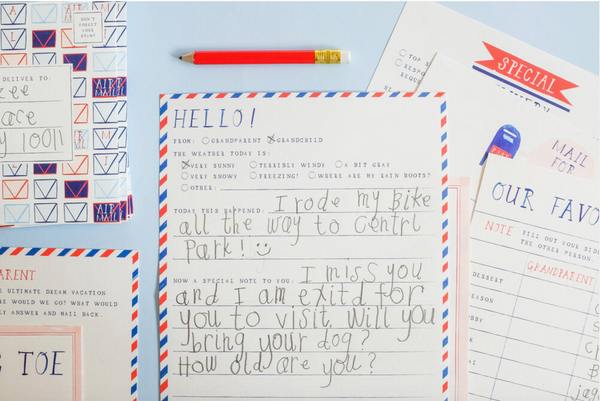 DON'T
FORGET
YOUR
STAMP!
DELIVER TO:
zee
ace
y 10011
AIR
MAIL
AIR
MAIL
HELLO!
FROM: GRANDPARENT GRANDCHILD
THE WEATHER TODAY IS:
VERY SUNNY TERRIBLY WINDY A BIT GRAY
VERY SNOWY FREEZING! WHERE ARE MY RAIN BOOTS?
OTHER:
TODAY THIS HAPPENED: I rode my Bike
all the way to Centrl
Park!
NOW A SPECIAL NOTE TO YOU: I miss you
and I am exitd for
you to visit. Will you
bring your dog?
How old are you?
ARENT
E ULTIMATE DREAM VACATION
RE WOULD WE GO? WHAT WOULD
LY ANSWER AND MAIL BACK.
G TOE
TOP S
RESPO
REQU
SPECIAL
MAIL
FOR
OUR FAVO
NOTE FILL OUT YOUR SIDE
THE OTHER PERSON
GRANDPARENT
DESSERT
EASON
BBY